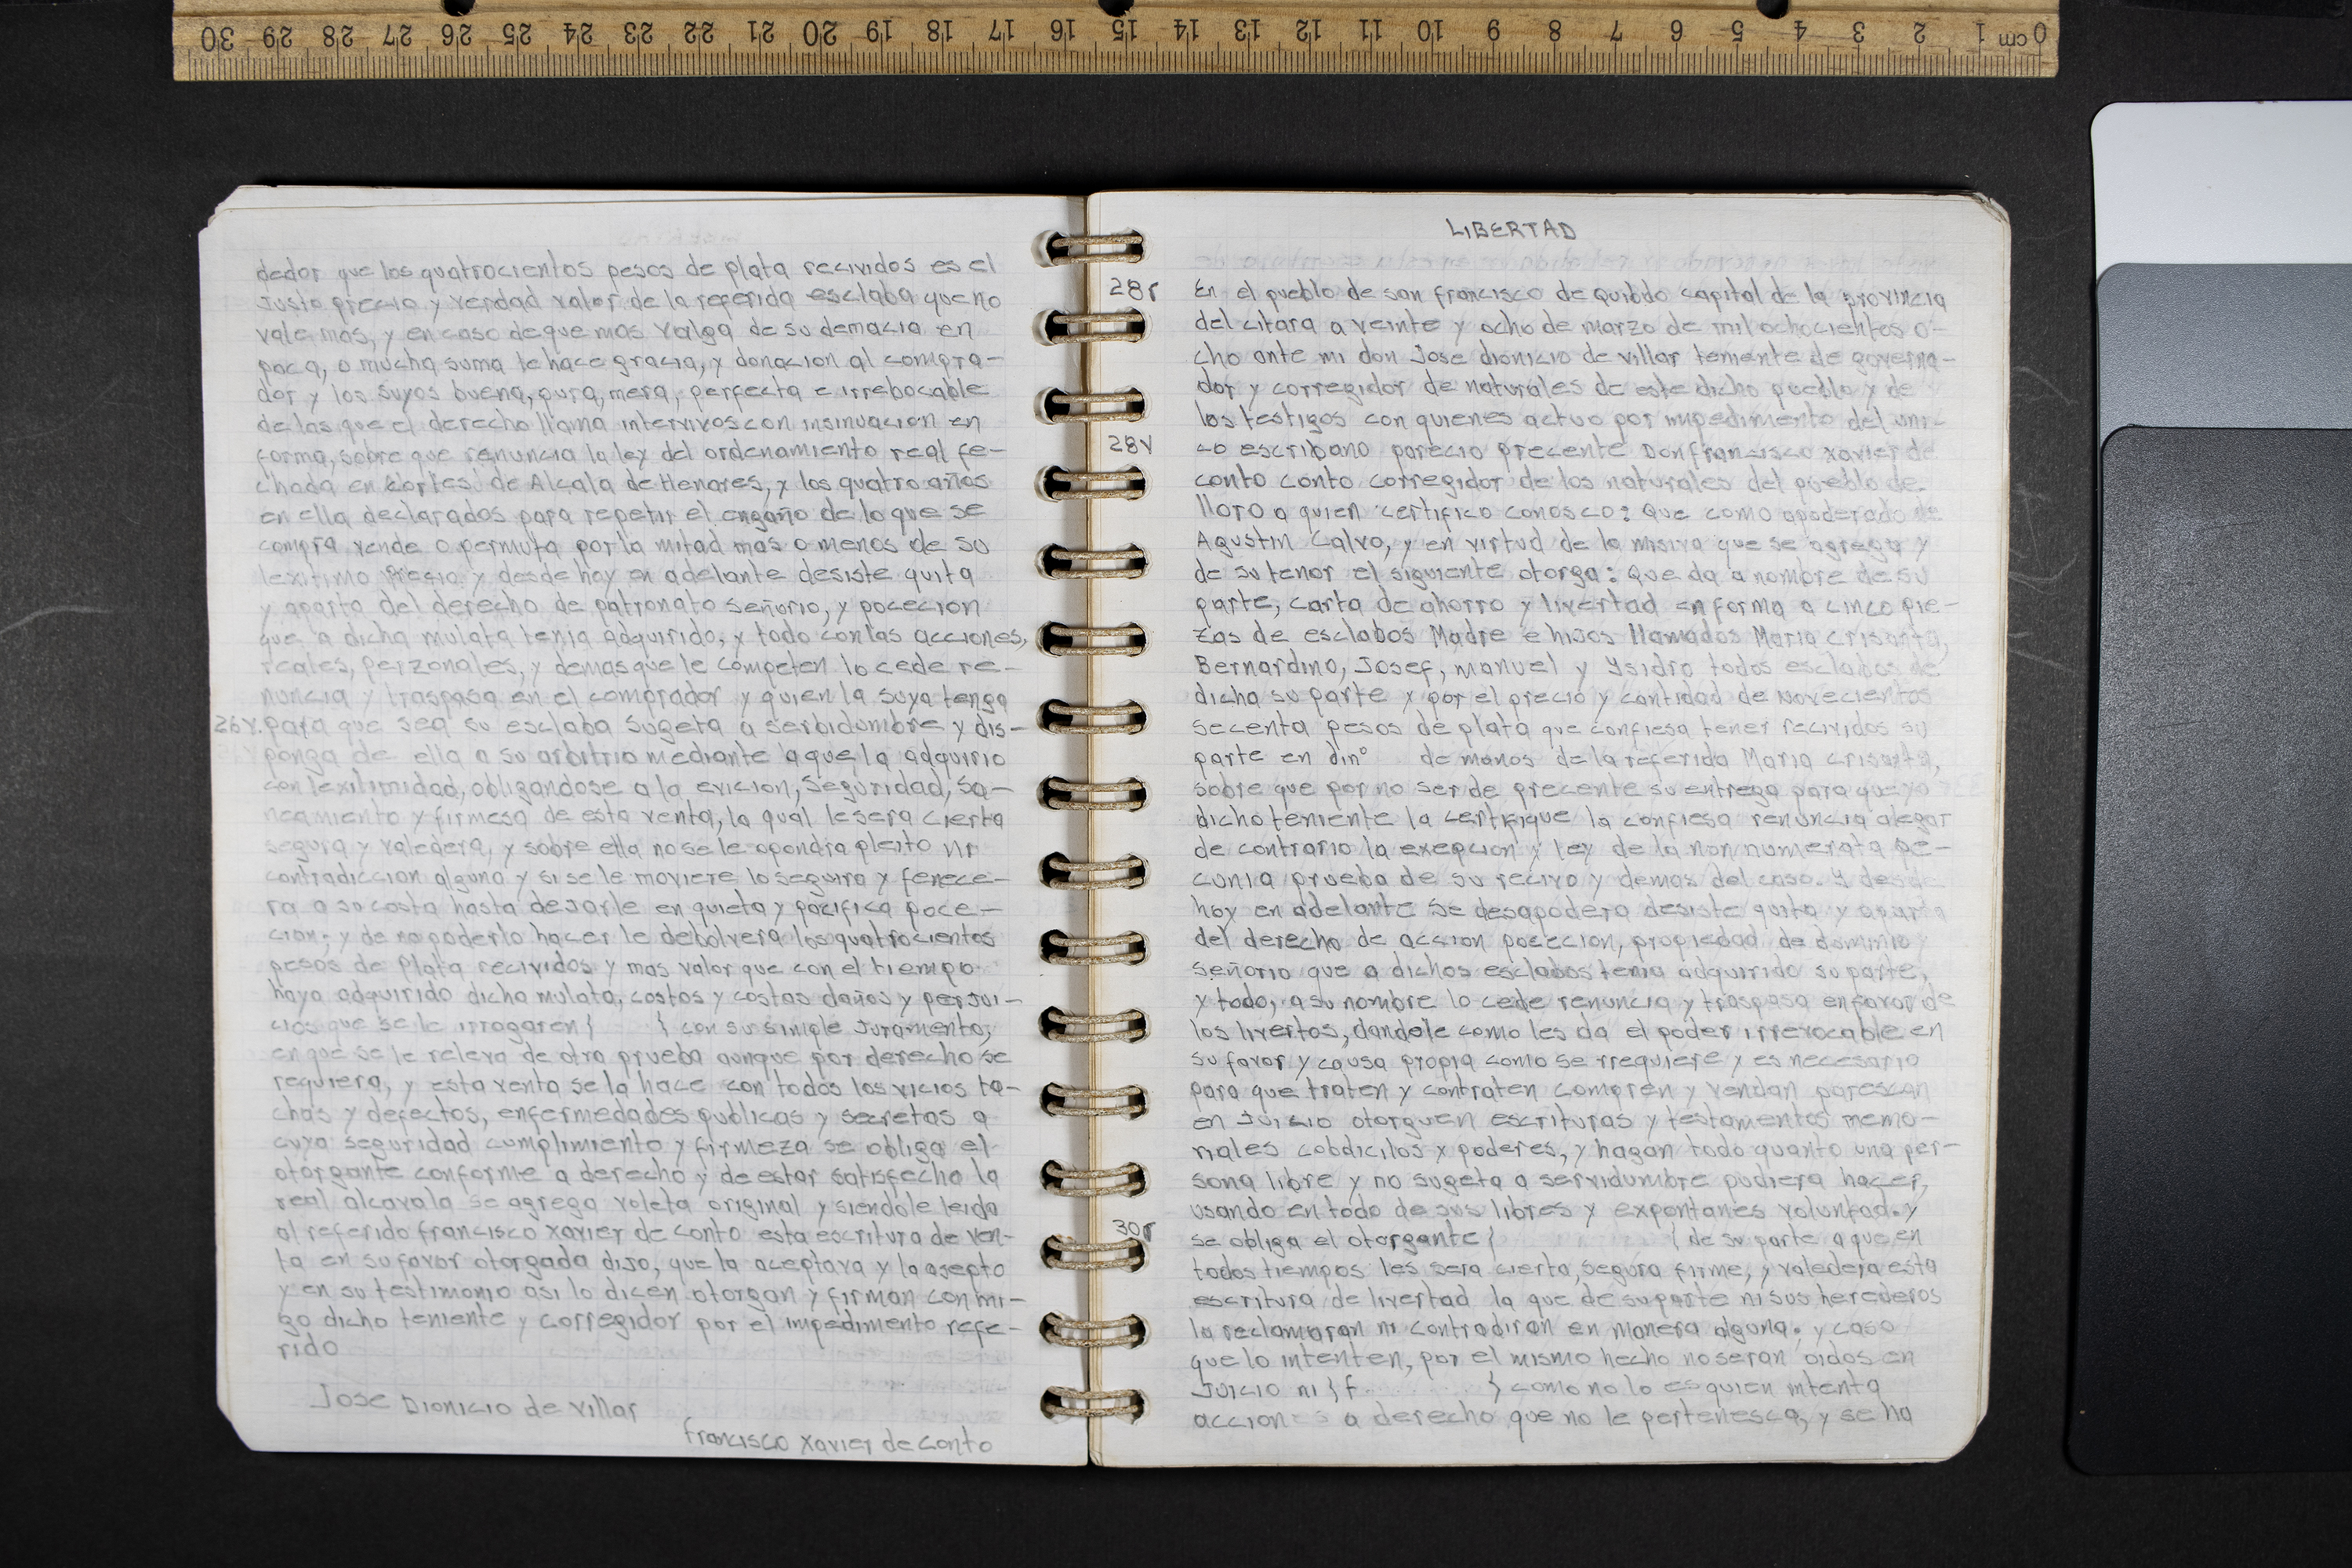 0 cm 1 2 3 4 5 6 7 8 9 10 11 12 13 14 15 16 17 18 19 20 21 22 23 24 25 26 27 28 29 30
dedor que los quatrocientos pesos de plata recividos es el
Justo precio y verdad valor de la referida esclaba que no
vale mas, y en caso de que mas valga de su demacia en
poca, o mucha suma le hace gracia, y donacion al compra-
dor y los suyos buena, pura, mera, perfecta e irrebocable
de las que el derecho llama intervivos con insinuacion en
forma, sobre que renuncia la ley del ordenamiento real fe-
chada en Cortes de Alcala de Henares, y los quatro años
en ella declarados para repetir el engaño de lo que se
compra vende o permuta por la mitad mas o menos de su
lexitimo Precio y desde hoy en adelante desiste quita
y aparta del derecho de patronato señorio, y pocecion
que a dicha mulata tenia adquirido, y todo con las acciones,
reales, perzonales, y demas que le competen lo cede re-
nuncia y traspasa en el comprador y quien la suya tenga
26v. para que sea su esclaba sugeta a serbidumbre y dis-
ponga de ella a su arbitrio mediante a que la adquirio
con lexitimidad, obligandose a la evicion, seguridad, sa-
neamiento y firmesa de esta venta, la qual le sera cierta
segura y valedera, y sobre ella no se le opondra pleito ni
contradiccion alguna y si se le moviere lo seguira y fenece-
ra a su costa hasta dejarle en quieta y pacifica poce-
cion; y de no poderlo hacer le debolvera los quatrocientos
pesos de Plata recividos y mas valor que con el tiempo
haya adquirido dicha mulata, costos y costas daños y perjui-
cios que se le irrogaren } { con su simple Juramento,
en que se le releva de otra prueba aunque por derecho se
requiera, y esta venta se la hace con todos los vicios ta-
chas y defectos, enfermedades publicas y secretas a
cuya seguridad cumplimiento y firmeza se obliga el
otorgante conforme a derecho y de estar satisfecho la
real alcavala se agrega voleta original y siendole leida
al referido francisco xavier de conto esta escritura de ven-
ta en su favor otorgada dijo, que la aceptava y la asepto
y en su testimonio asi lo dicen otorgan y firman con mi-
go dicho teniente y corregidor por el impedimento refe-
rido
Jose Dionicio de Villar
francisco xavier de conto
LIBERTAD
28r En el pueblo de san francisco de Quibdo capital de la provincia
del citara a veinte y ocho de marzo de mil ochocientos o-
cho ante mi don Jose dionicio de villar teniente de governa-
dor y corregidor de naturales de este dicho pueblo y de
los testigos con quienes actuo por impedimento del uni-
28v co escribano parecio precente Don francisco xavier de
conto conto corregidor de los naturales del pueblo de
lloro a quien certifico conosco: Que como apoderado de
Agustin Calvo, y en virtud de la misiva que se agrega y
de su tenor el siguiente otorga: Que da a nombre de su
parte, carta de ahorro y livertad en forma a cinco pie-
zas de esclabos Madre e hijos llamados Maria Crisanta,
Bernardino, Josef, manuel y Ysidro todos esclabos de
dicha su parte y por el precio y cantidad de novecientos
secenta pesos de plata que confiesa tener recividos su
parte en din° de manos de la referida Maria Crisanta,
sobre que por no ser de precente su entrega para que yo
dicho teniente la certifique la confiesa renuncia alegar
de contrario la exepcion y ley de la non numerata pe-
cunia prueba de su recivo y demas del caso. Y desde
hoy en adelante se desapodera desiste quita y aparta
del derecho de accion pocecion, propiedad de dominio y
señorio que a dichos esclabos tenia adquirido su parte,
y todo, a su nombre lo cede renuncia y traspasa en favor de
los livertos, dandole como les da el poder irrevocable en
su favor y causa propia como se rrequiere y es necesario
para que traten y contraten compren y vendan parescan
en Juicio otorguen escrituras y testamentos memo-
riales cobdicilos y poderes, y hagan todo quanto una per-
sona libre y no sugeta a servidumbre pudiera hacer,
usando en todo de sus libres y expontanes voluntad. y
30r se obliga el otorgante } { de su parte a que en
todos tiempos les sera cierta, segura firme, y valedera esta
escritura de livertad la que de su parte ni sus herederos
la reclamaran ni contradiran en manera alguna; y caso
que lo intenten, por el mismo hecho no seran oidos en
Juicio ni } f } como no lo es quien intenta
acciones a derecho que no le pertenesca, y se ha